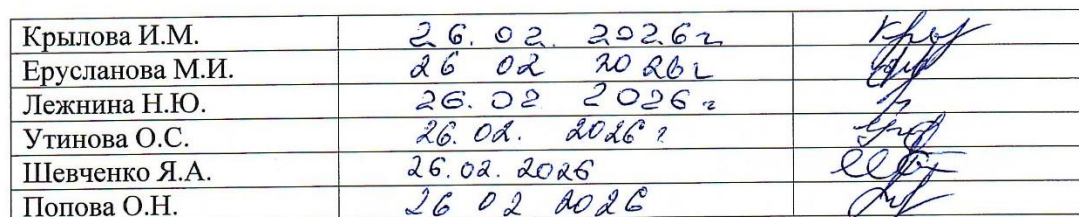 Крылова И.М. 26.02.2026г
Ерусланова М.И. 26 02 2026г
Лежнина Н.Ю. 26.02 2026г
Утинова О.С. 26.02. 2026г
Шевченко Я.А. 26.02.2026
Попова О.Н. 26 02 2026